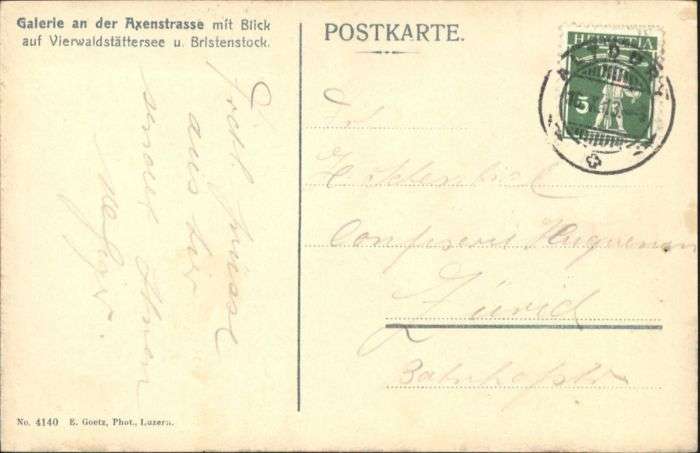 Galerie an der Axenstrasse mit Blick
auf Vierwaldstättersee u. Bristenstock.
POSTKARTE.
HELVETIA
5
ALTDORF
aus
sendet Ihnen
Frl.
Confiserie Huguenin
Zürich
Bahnhofstr
No. 4140 E. Goetz, Phot., Luzern.